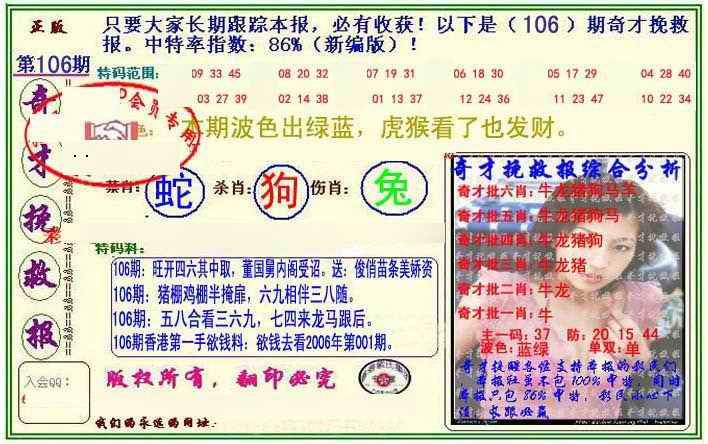 正版
只要大家长期跟踪本报，必有收获！以下是（106）期奇才挽救
报。中特率指数：86%（新编版）！
第106期
特码范围：
09 33 45 08 20 32 07 19 31 06 18 30 05 17 29 04 28 40
03 27 39 02 14 38 01 13 37 12 24 36 11 23 47 10 22 34
会员专用
色：本期波色出绿蓝，虎猴看了也发财。
奇才挽救报
禁肖：蛇 杀肖：狗 伤肖：兔
特码料：
106期：旺开四六其中取，董国舅内阁受诏。送：俊俏苗条美娇资
106期：猪棚鸡棚半掩扉，六九相伴三八随。
106期：五八合看三六九，七四来龙马跟后。
106期香港第一手欲钱料：欲钱去看2006年第001期。
版权所有，翻印必究
入会QQ：
我们的永远的网址：
奇才挽救报综合分析
奇才批六肖：牛龙猪狗马羊
奇才批五肖：牛龙猪狗马
奇才批四肖：牛龙猪狗
奇才批三肖：牛龙猪
奇才批二肖：牛龙
奇才批一肖：牛
主一码：37 防：20 15 44
波色：蓝绿 单双：单
奇才提醒各位支持本报的彩民们
本报社虽不包100%中特，但时
本报只包86%中特，彩民小心下
注，长跟必赢